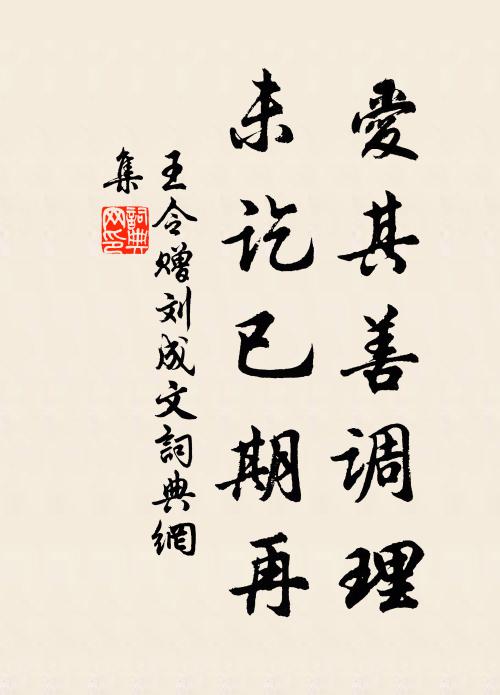 愛其善调理
未訖已期再
王令赠刘成文詞典網
集
詞典
网印